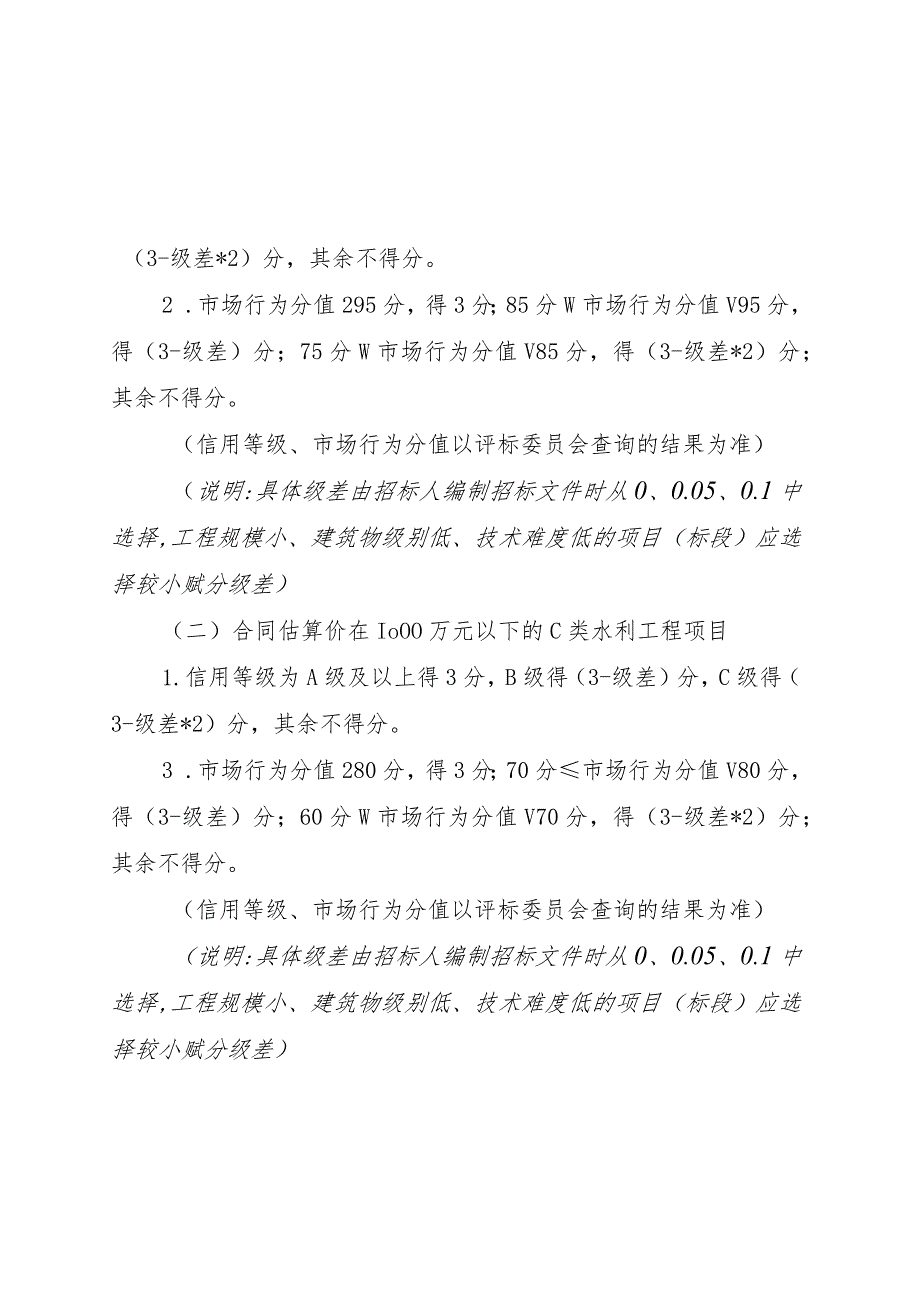 （3-级差*2）分，其余不得分。
2 .市场行为分值295分，得3分；85分W市场行为分值V95分，
得（3-级差）分；75分W市场行为分值V85分，得（3-级差*2）分；
其余不得分。
（信用等级、市场行为分值以评标委员会查询的结果为准）
（说明：具体级差由招标人编制招标文件时从0、0.05、0.1中
选择,工程规模小、建筑物级别低、技术难度低的项目（标段）应选
择较小赋分级差）
（二）合同估算价在IoOO万元以下的C类水利工程项目
1.信用等级为A级及以上得3分，B级得（3-级差）分，C级得（
3-级差*2）分，其余不得分。
3 .市场行为分值280分，得3分；70分≤市场行为分值V80分，
得（3-级差）分；60分W市场行为分值V70分，得（3-级差*2）分；
其余不得分。
（信用等级、市场行为分值以评标委员会查询的结果为准）
（说明：具体级差由招标人编制招标文件时从0、0.05、0.1中
选择,工程规模小、建筑物级别低、技术难度低的项目（标段）应选
择较小赋分级差）